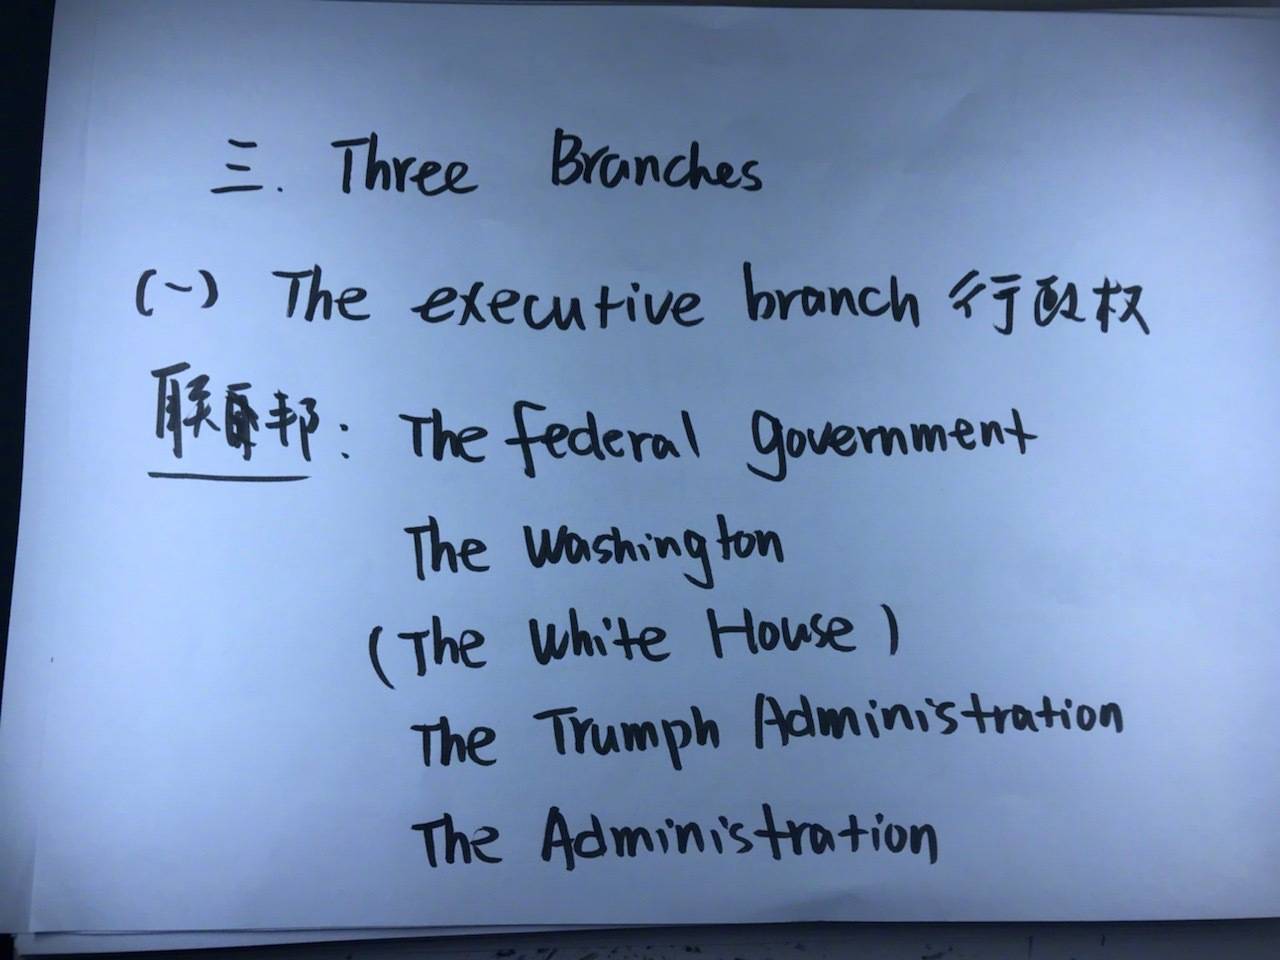 三. Three Branches
(一) The executive branch 行政权
联邦: The federal government
The Washington
(The White House)
The Trumph Administration
The Administration